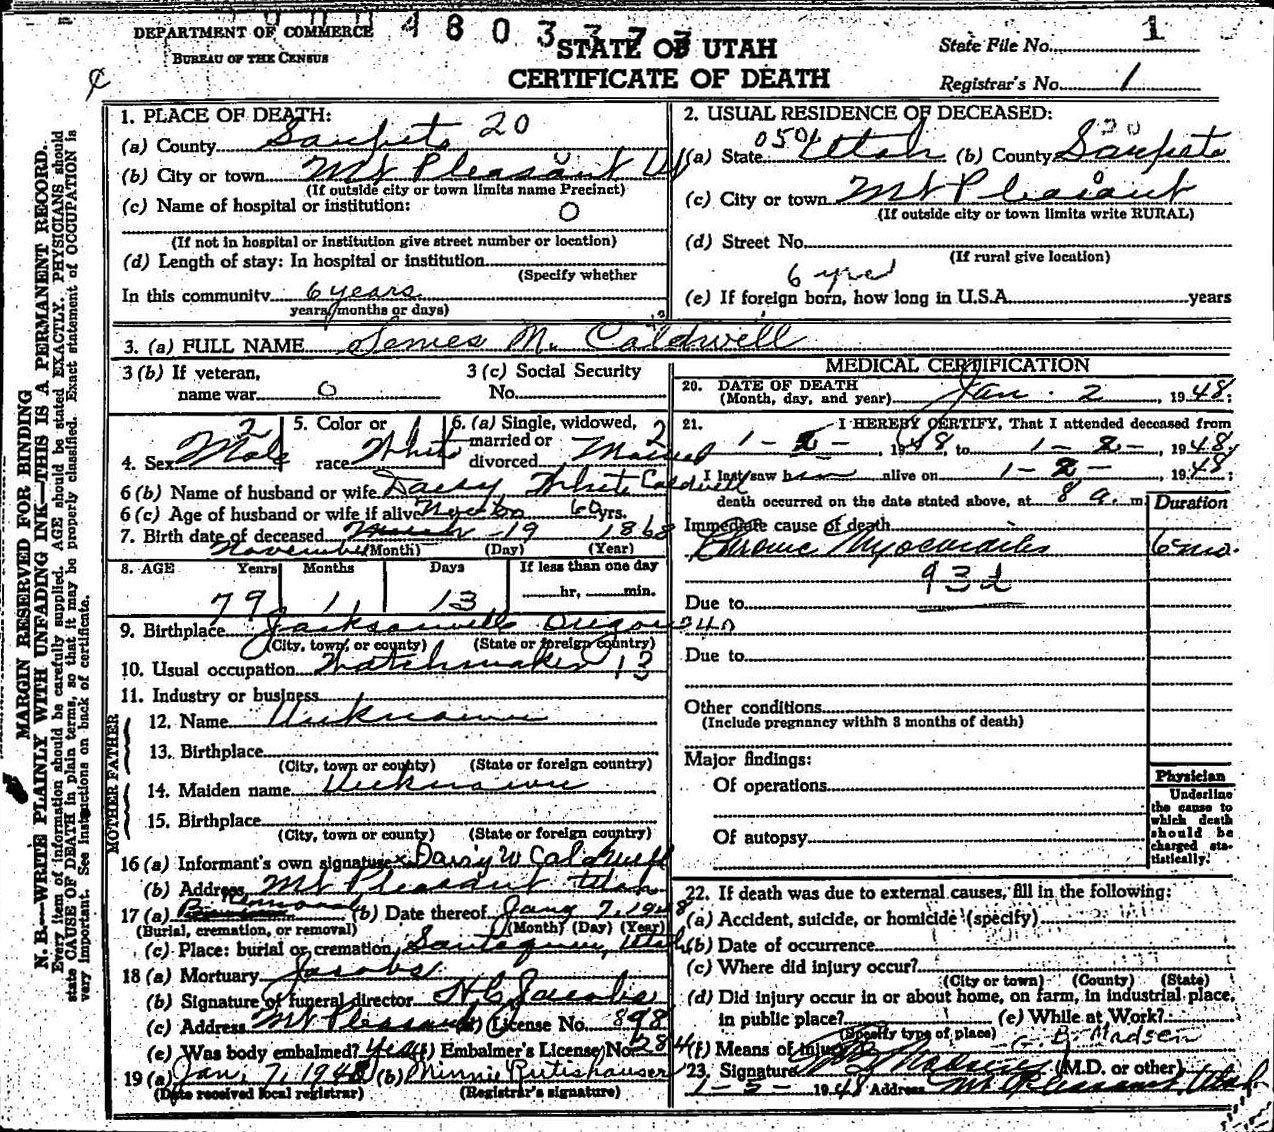 DEPARTMENT OF COMMERCE
BUREAU OF THE CENSUS
STATE OF UTAH
CERTIFICATE OF DEATH
State File No. 1
Registrar's No. 1
MARGIN RESERVED FOR BINDING
N. B.—WRITE PLAINLY WITH UNFADING INK—THIS IS A PERMANENT RECORD.
Every item of information should be carefully supplied. AGE should be stated EXACTLY. PHYSICIANS should
state CAUSE OF DEATH in plain terms, so that it may be properly classified. Exact statement of OCCUPATION is
very important. See instructions on back of certificate.
1. PLACE OF DEATH:
(a) County Sanpete 20
(b) City or town Mt Pleasant
(If outside city or town limits name Precinct)
(c) Name of hospital or institution: 0
(If not in hospital or institution give street number or location)
(d) Length of stay: In hospital or institution
(Specify whether
In this community 6 years
years, months or days)
2. USUAL RESIDENCE OF DECEASED:
(a) State Utah (b) County Sanpete 20
(c) City or town Mt Pleasant
(If outside city or town limits write RURAL)
(d) Street No.
(If rural give location)
6 yrs
(e) If foreign born, how long in U.S.A. years
3. (a) FULL NAME James M. Caldwell
3 (b) If veteran,
name war 0
3 (c) Social Security
No.
4. Sex Male 2
5. Color or
race White
6. (a) Single, widowed,
married or
divorced Married 2
6 (b) Name of husband or wife Daisy White Caldwell
6 (c) Age of husband or wife if alive 60 yrs.
7. Birth date of deceased March 19 1868
November (Month) (Day) (Year)
8. AGE Years Months Days If less than one day
79 1 13 hr. min.
9. Birthplace Jacksonville Oregon
(City, town, or county) (State or foreign country)
10. Usual occupation Watchmaker 13
11. Industry or business
FATHER
12. Name Unknown
13. Birthplace
(City, town or county) (State or foreign country)
MOTHER
14. Maiden name Unknown
15. Birthplace
(City, town or county) (State or foreign country)
16 (a) Informant's own signature x Daisy W Caldwell
(b) Address Mt Pleasant Utah
17 (a) Removal (b) Date thereof Jany 7, 1948
(Burial, cremation, or removal) (Month) (Day) (Year)
(c) Place: burial or cremation Santaquin, Utah
18 (a) Mortuary Jacobs
(b) Signature of funeral director H C Jacobs
(c) Address Mt Pleasant (d) License No. 898
(e) Was body embalmed? yes (f) Embalmer's License No. 284
19 (a) Jan, 7, 1948 (b) Minnie Rutishauser
(Date received local registrar) (Registrar's signature)
MEDICAL CERTIFICATION
20. DATE OF DEATH
(Month, day, and year) Jan. 2, 1948;
21. I HEREBY CERTIFY, That I attended deceased from
1-2-, 1948, to 1-2-, 1948
I last saw him alive on 1-2-, 1948;
death occurred on the date stated above, at 8 a. m.
Duration
Immediate cause of death
Chronic Myocarditis 6 mo.
93d
Due to
Due to
Other conditions
(Include pregnancy within 3 months of death)
Major findings:
Of operations
Of autopsy
Physician
Underline
the cause to
which death
should be
charged sta-
tistically.
22. If death was due to external causes, fill in the following:
(a) Accident, suicide, or homicide (specify)
(b) Date of occurrence
(c) Where did injury occur?
(City or town) (County) (State)
(d) Did injury occur in or about home, on farm, in industrial place,
in public place? (e) While at Work?
(Specify type of place)
(f) Means of injury B. Madsen
23. Signature Madsen (M.D. or other)
1-5-1948 Address Mt Pleasant, Utah